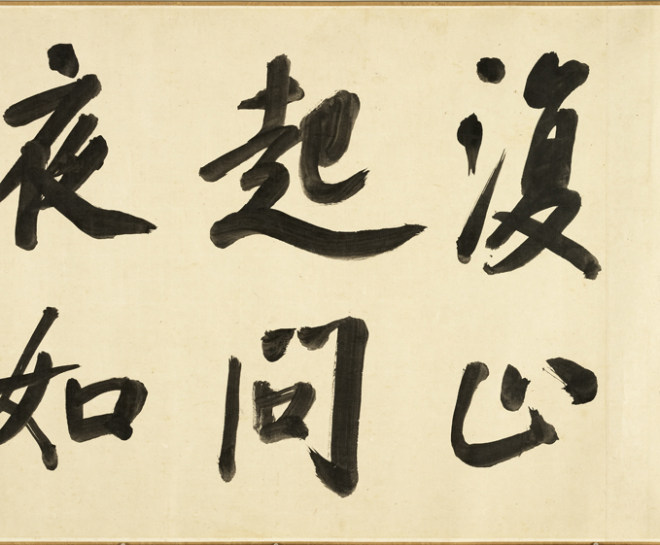 復止
起問
夜如